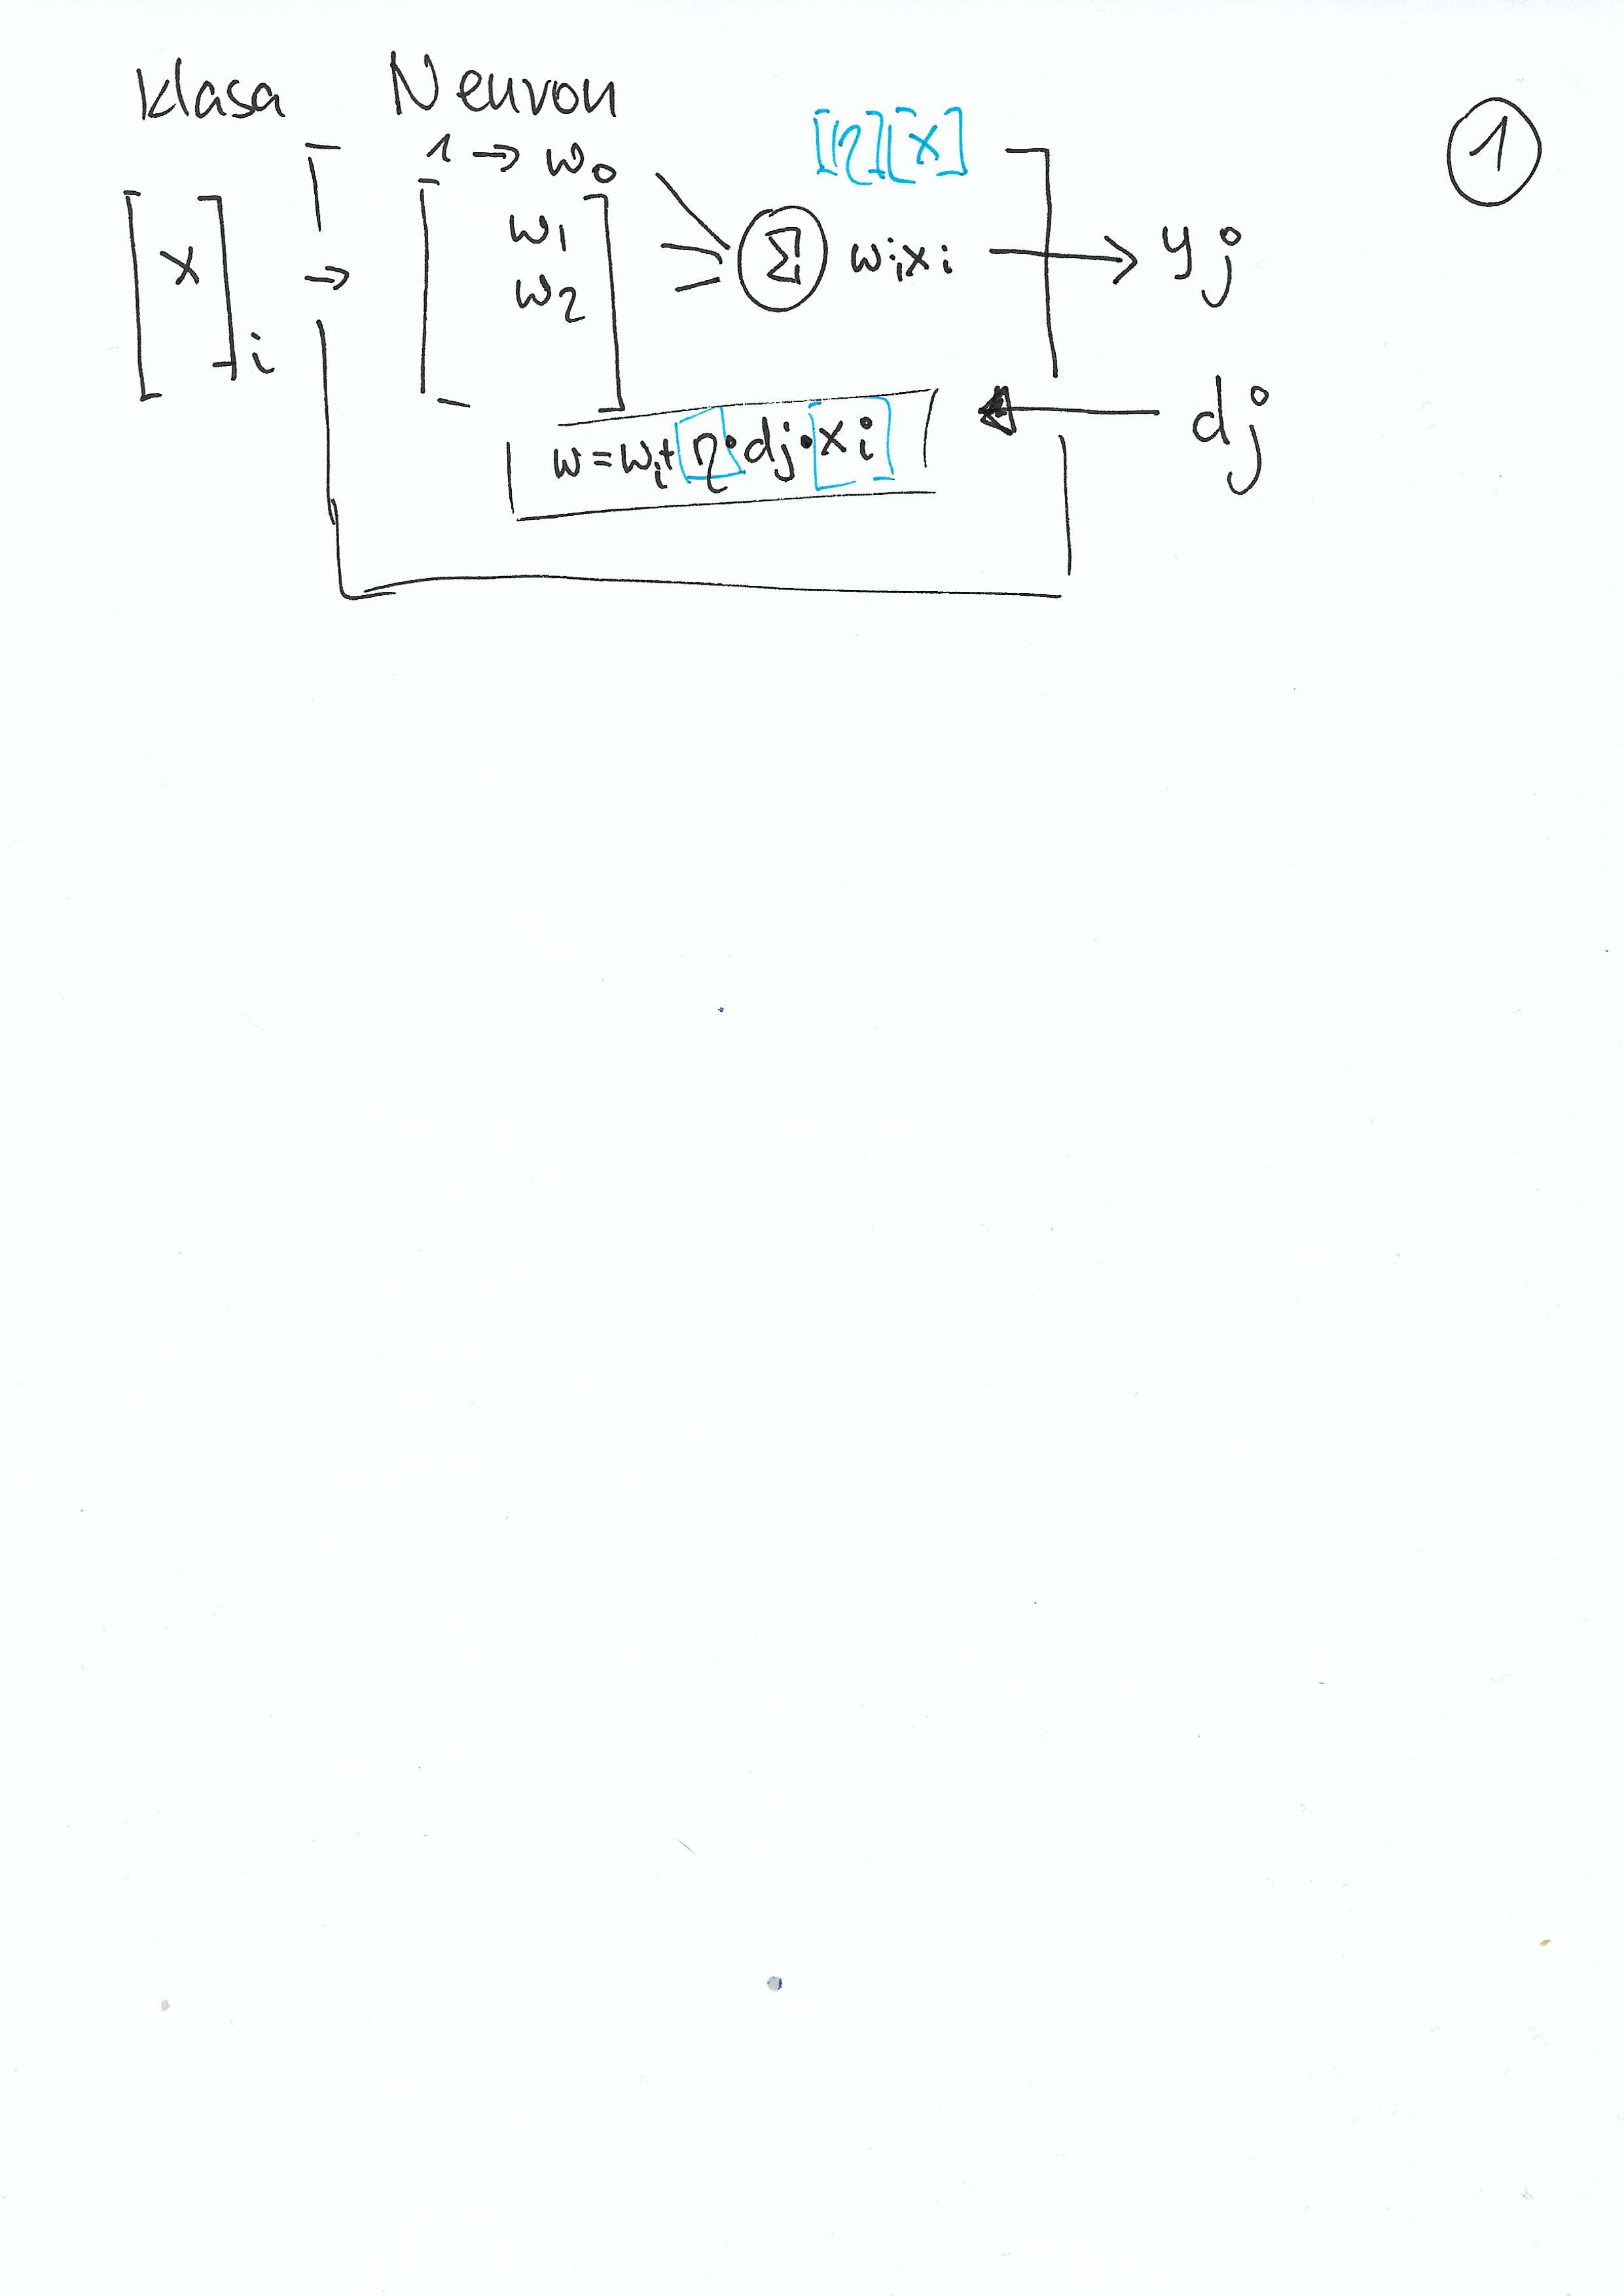 klasa Neuron
1
1 → w0
[η][x]
[x]i → [w1 w2] Σ wixi → yj
w = wi + η · dj · xi
dj